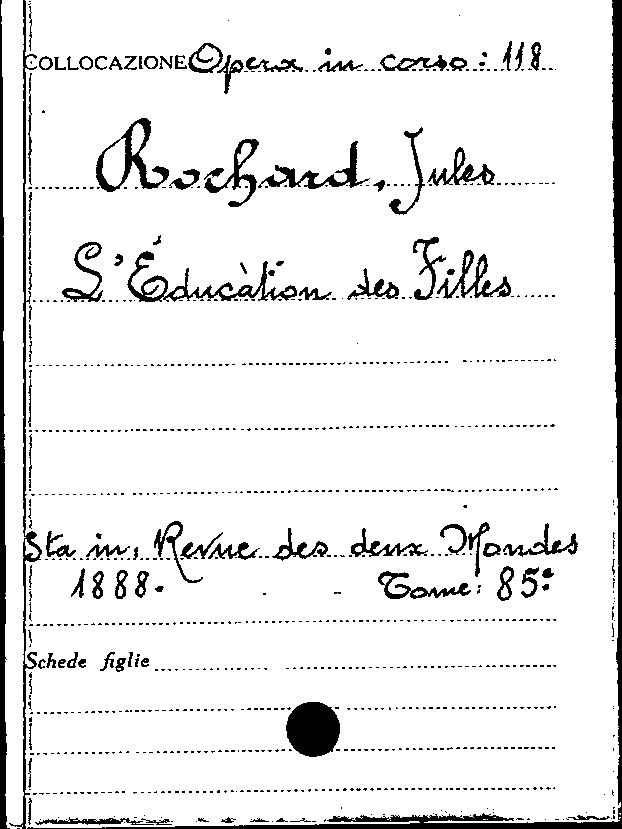 COLLOCAZIONE Opera in corso: 118
Rochard, Jules
L'Éducàtion des Filles
Sta in: Revue des deux Mondes
1888. - Tome: 85º
Schede figlie